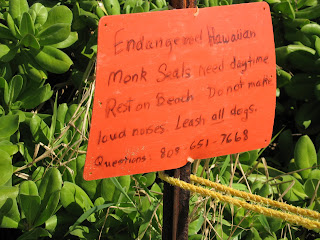 Endangered Hawaiian
Monk Seals need daytime
Rest on Beach. Do not make
loud noises. Leash all dogs.
Questions: 808-651-7668